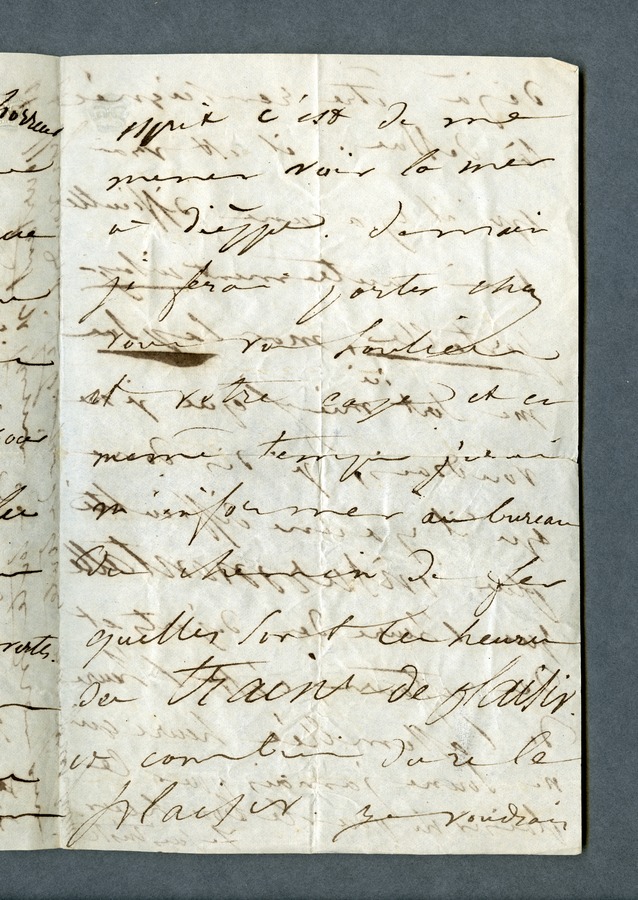 c'est de me
mener voir la mer
a dièppe. demain
je ferai porter chez
vous vos
et votre cage et en
même temps j'irai
m'informer au bureau
du chemin de fer
quelles sont les heures
des trains de plaisir.
et combien dure le
plaisir. je voudrais